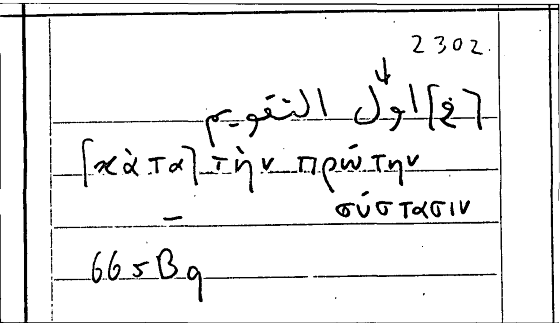 2302.
[في] اول التقويم
[κὰτα] τὴν πρώτην
σύστασιν
665B9